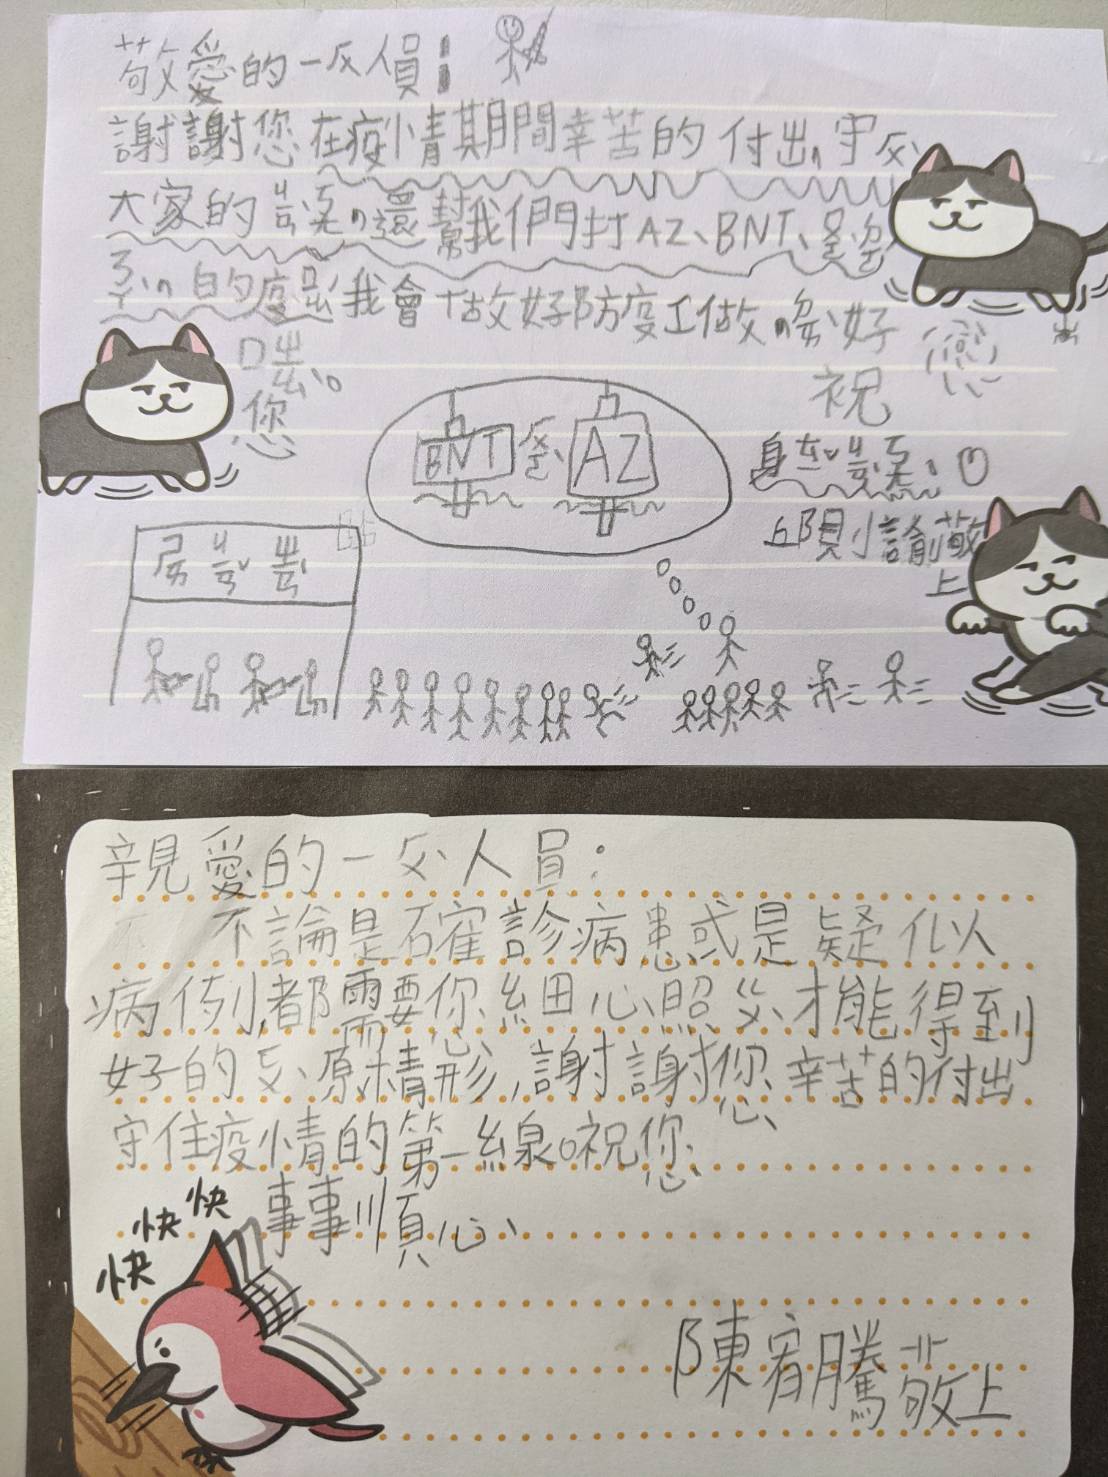 敬愛的一ㄈㄨ人員：
謝謝您在疫情期間辛苦的付出，守
大家的ㄐㄧㄢˋㄎㄤ，還幫我們打AZ、BNT、
的疫苗，我會做好防疫工做，好
祝
您
身ㄊㄧˇㄐㄧㄢˋㄎㄤ。
敬
上
BNT
AZ
親愛的一ㄈㄨ人員：
不論是確診病患或是疑似
病例，都需要您細心照ㄍㄨˋ才能得到
好的ㄈㄨˋ原情形，謝謝您辛苦的付出
守住疫情的第一線。祝您
事事順心
快 快 快
陳宥騰敬上